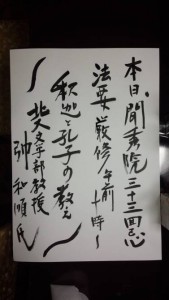 本日、聞秀院三十三回忌
法要厳修午前十時〜
釈迦と孔子の教え
北大文学部教授
弥和順氏